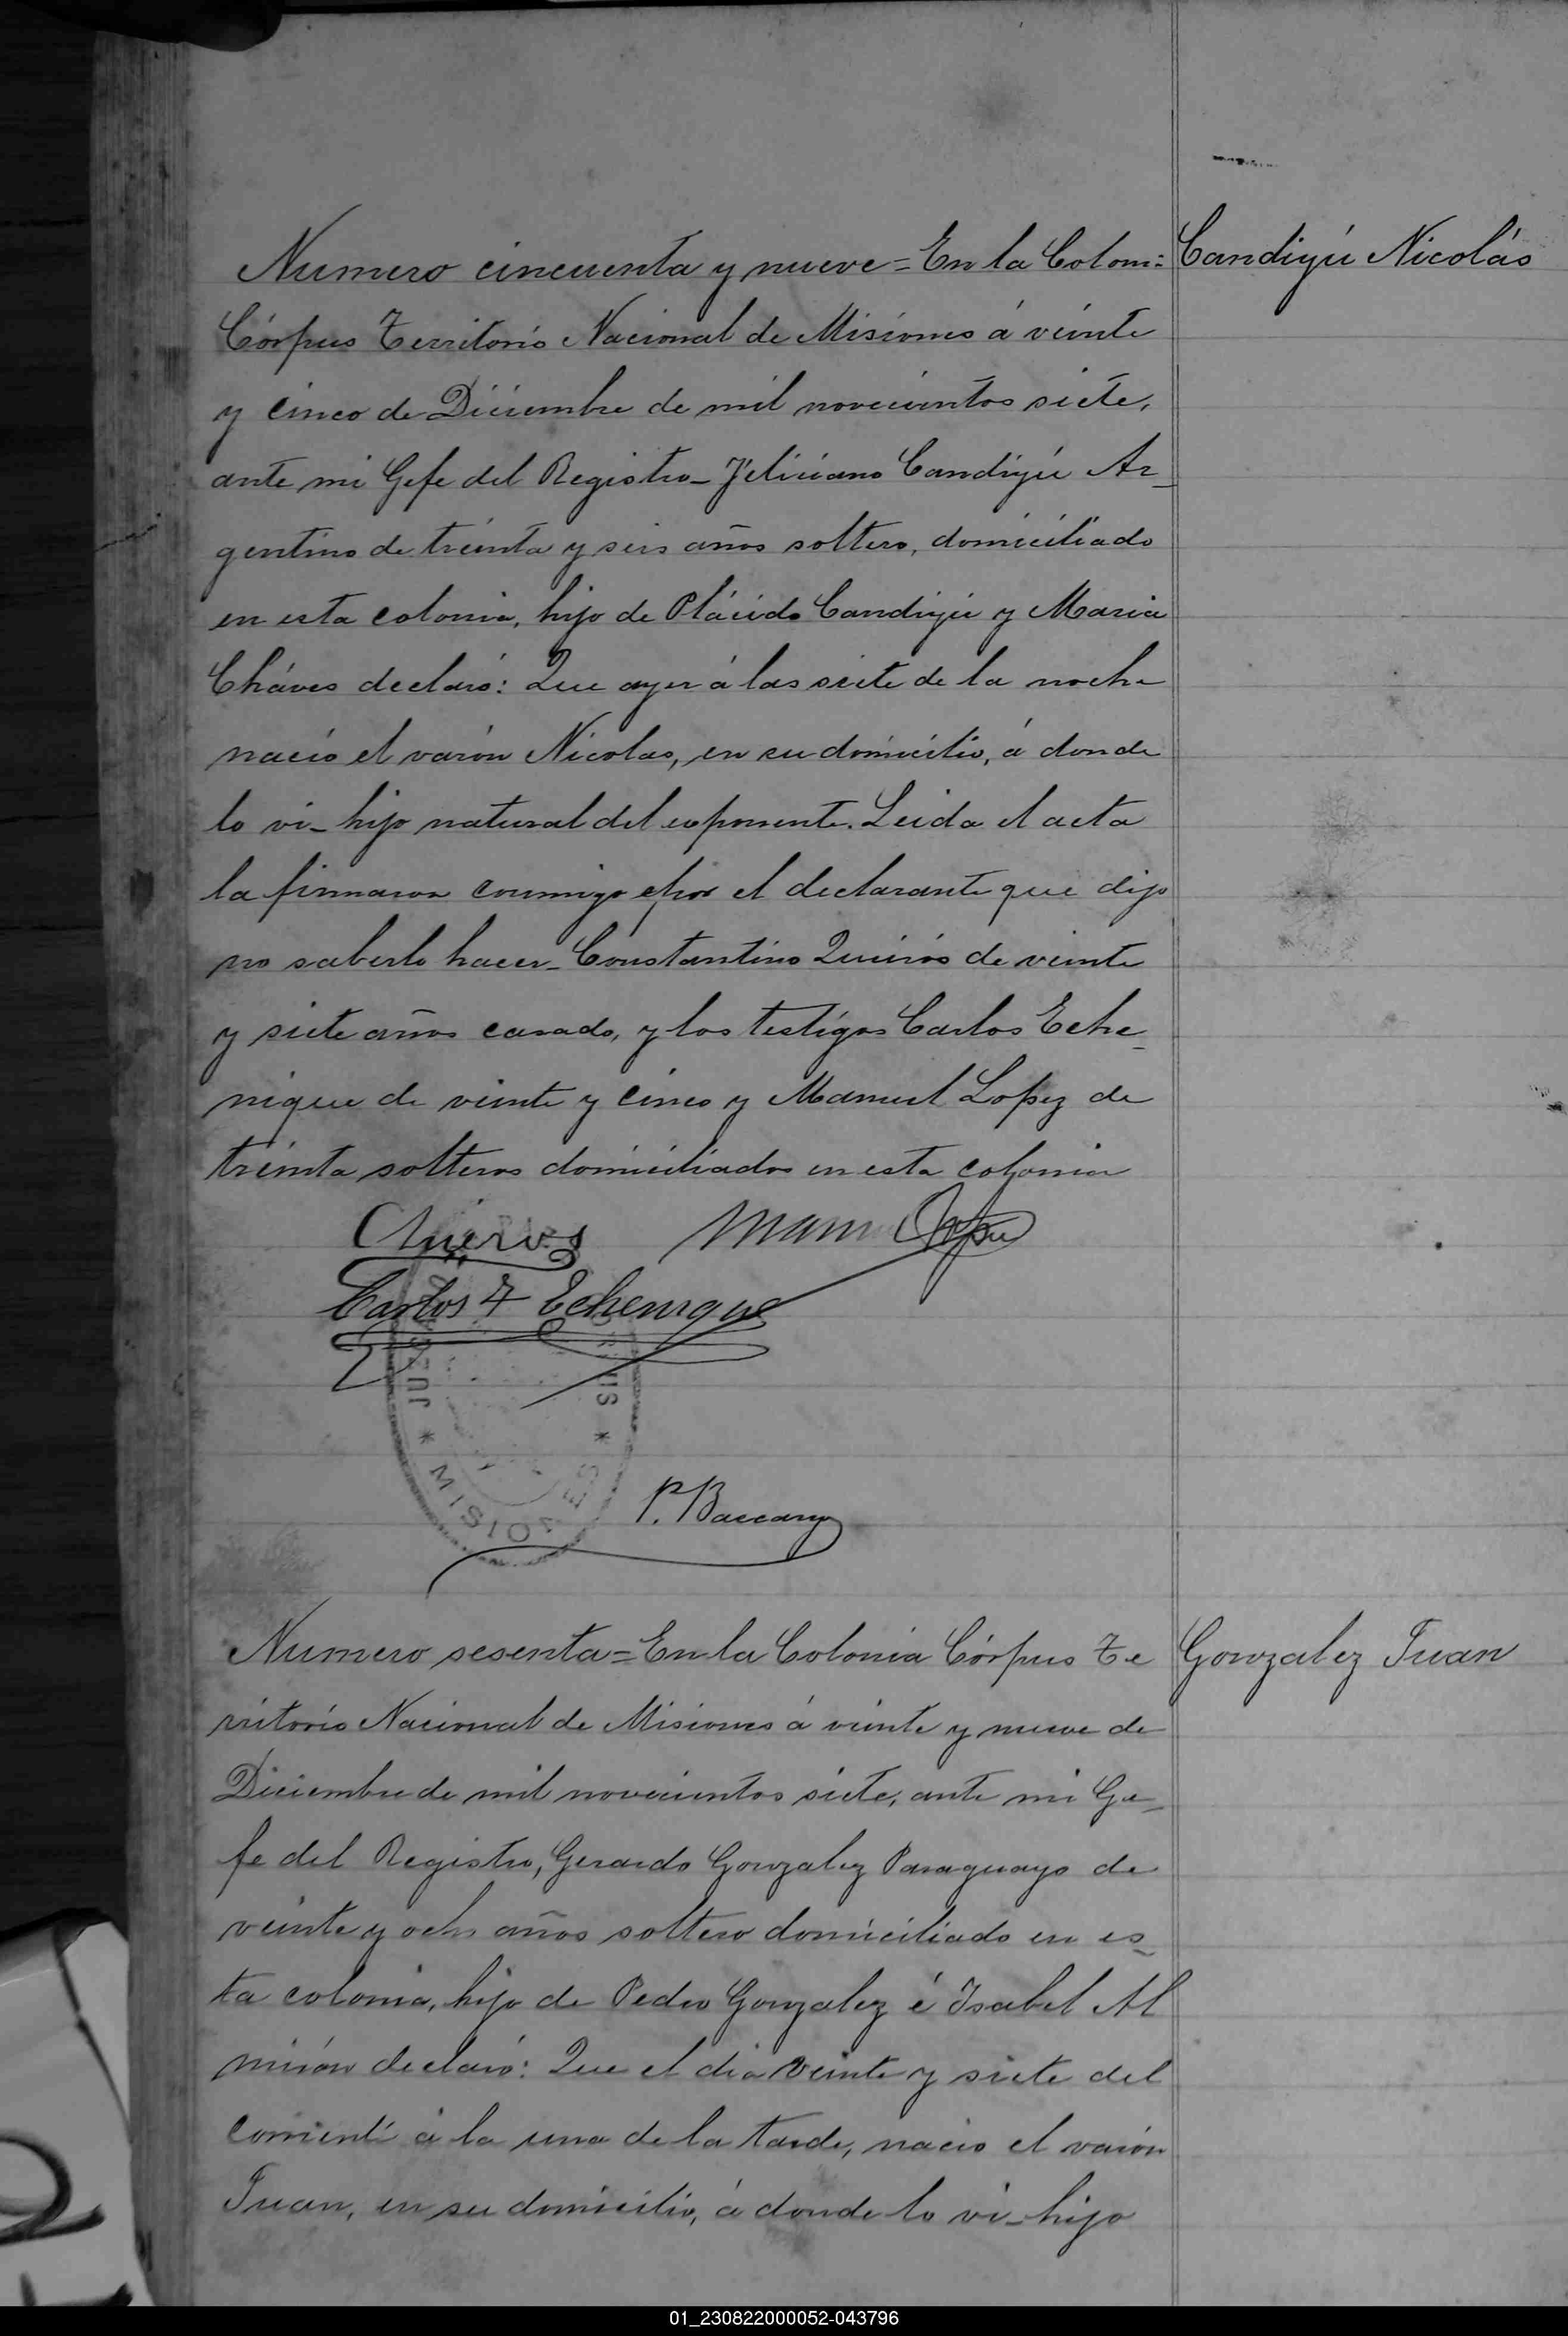 Numero cincuenta y nueve = En la Coloni:
Candiyú Nicolás
Córpus Territorio Nacional de Misiones á veinte
y cinco de Diciembre de mil novecientos siete,
ante mi Gefe del Registro_ Feliciano Candiyú Ar_
gentino de treinta y seis años soltero, domiciliado
en esta colonia, hijo de Plácido Candiyú y Maria
Cháves declaró: Que ayer á las siete de la noche
nació el varón Nicolas, en su domicilio, á donde
lo vi_ hijo natural del exponente. Leida el acta
la firmaron conmigo por el declarante que dijo
no saberlo hacer_ Constantino Quirós de veinte
y siete años casado, y los testigos Carlos Eche_
nique de veinte y cinco y Manuel Lopez de
treinta solteros domiciliados en esta colonia
Manuel Lopez
Carlos F Echenique
JUZGADO * MISIONES *
P. Baccary
Numero sesenta = En la Colonia Córpus Te
Gonzalez Juan
rritorio Nacional de Misiones á veinte y nueve de
Diciembre de mil novecientos siete, ante mi Ge_
fe del Registro, Gerardo Gonzalez Paraguayo de
veinte y ocho años soltero domiciliado en es_
ta colonia, hijo de Pedro Gonzalez é Isabel Al
mirón declaró: Que el dia veinte y siete del
corriente á la una de la tarde, nació el varón
Juan, en su domicilio, á donde lo vi_ hijo
01_230822000052-043796